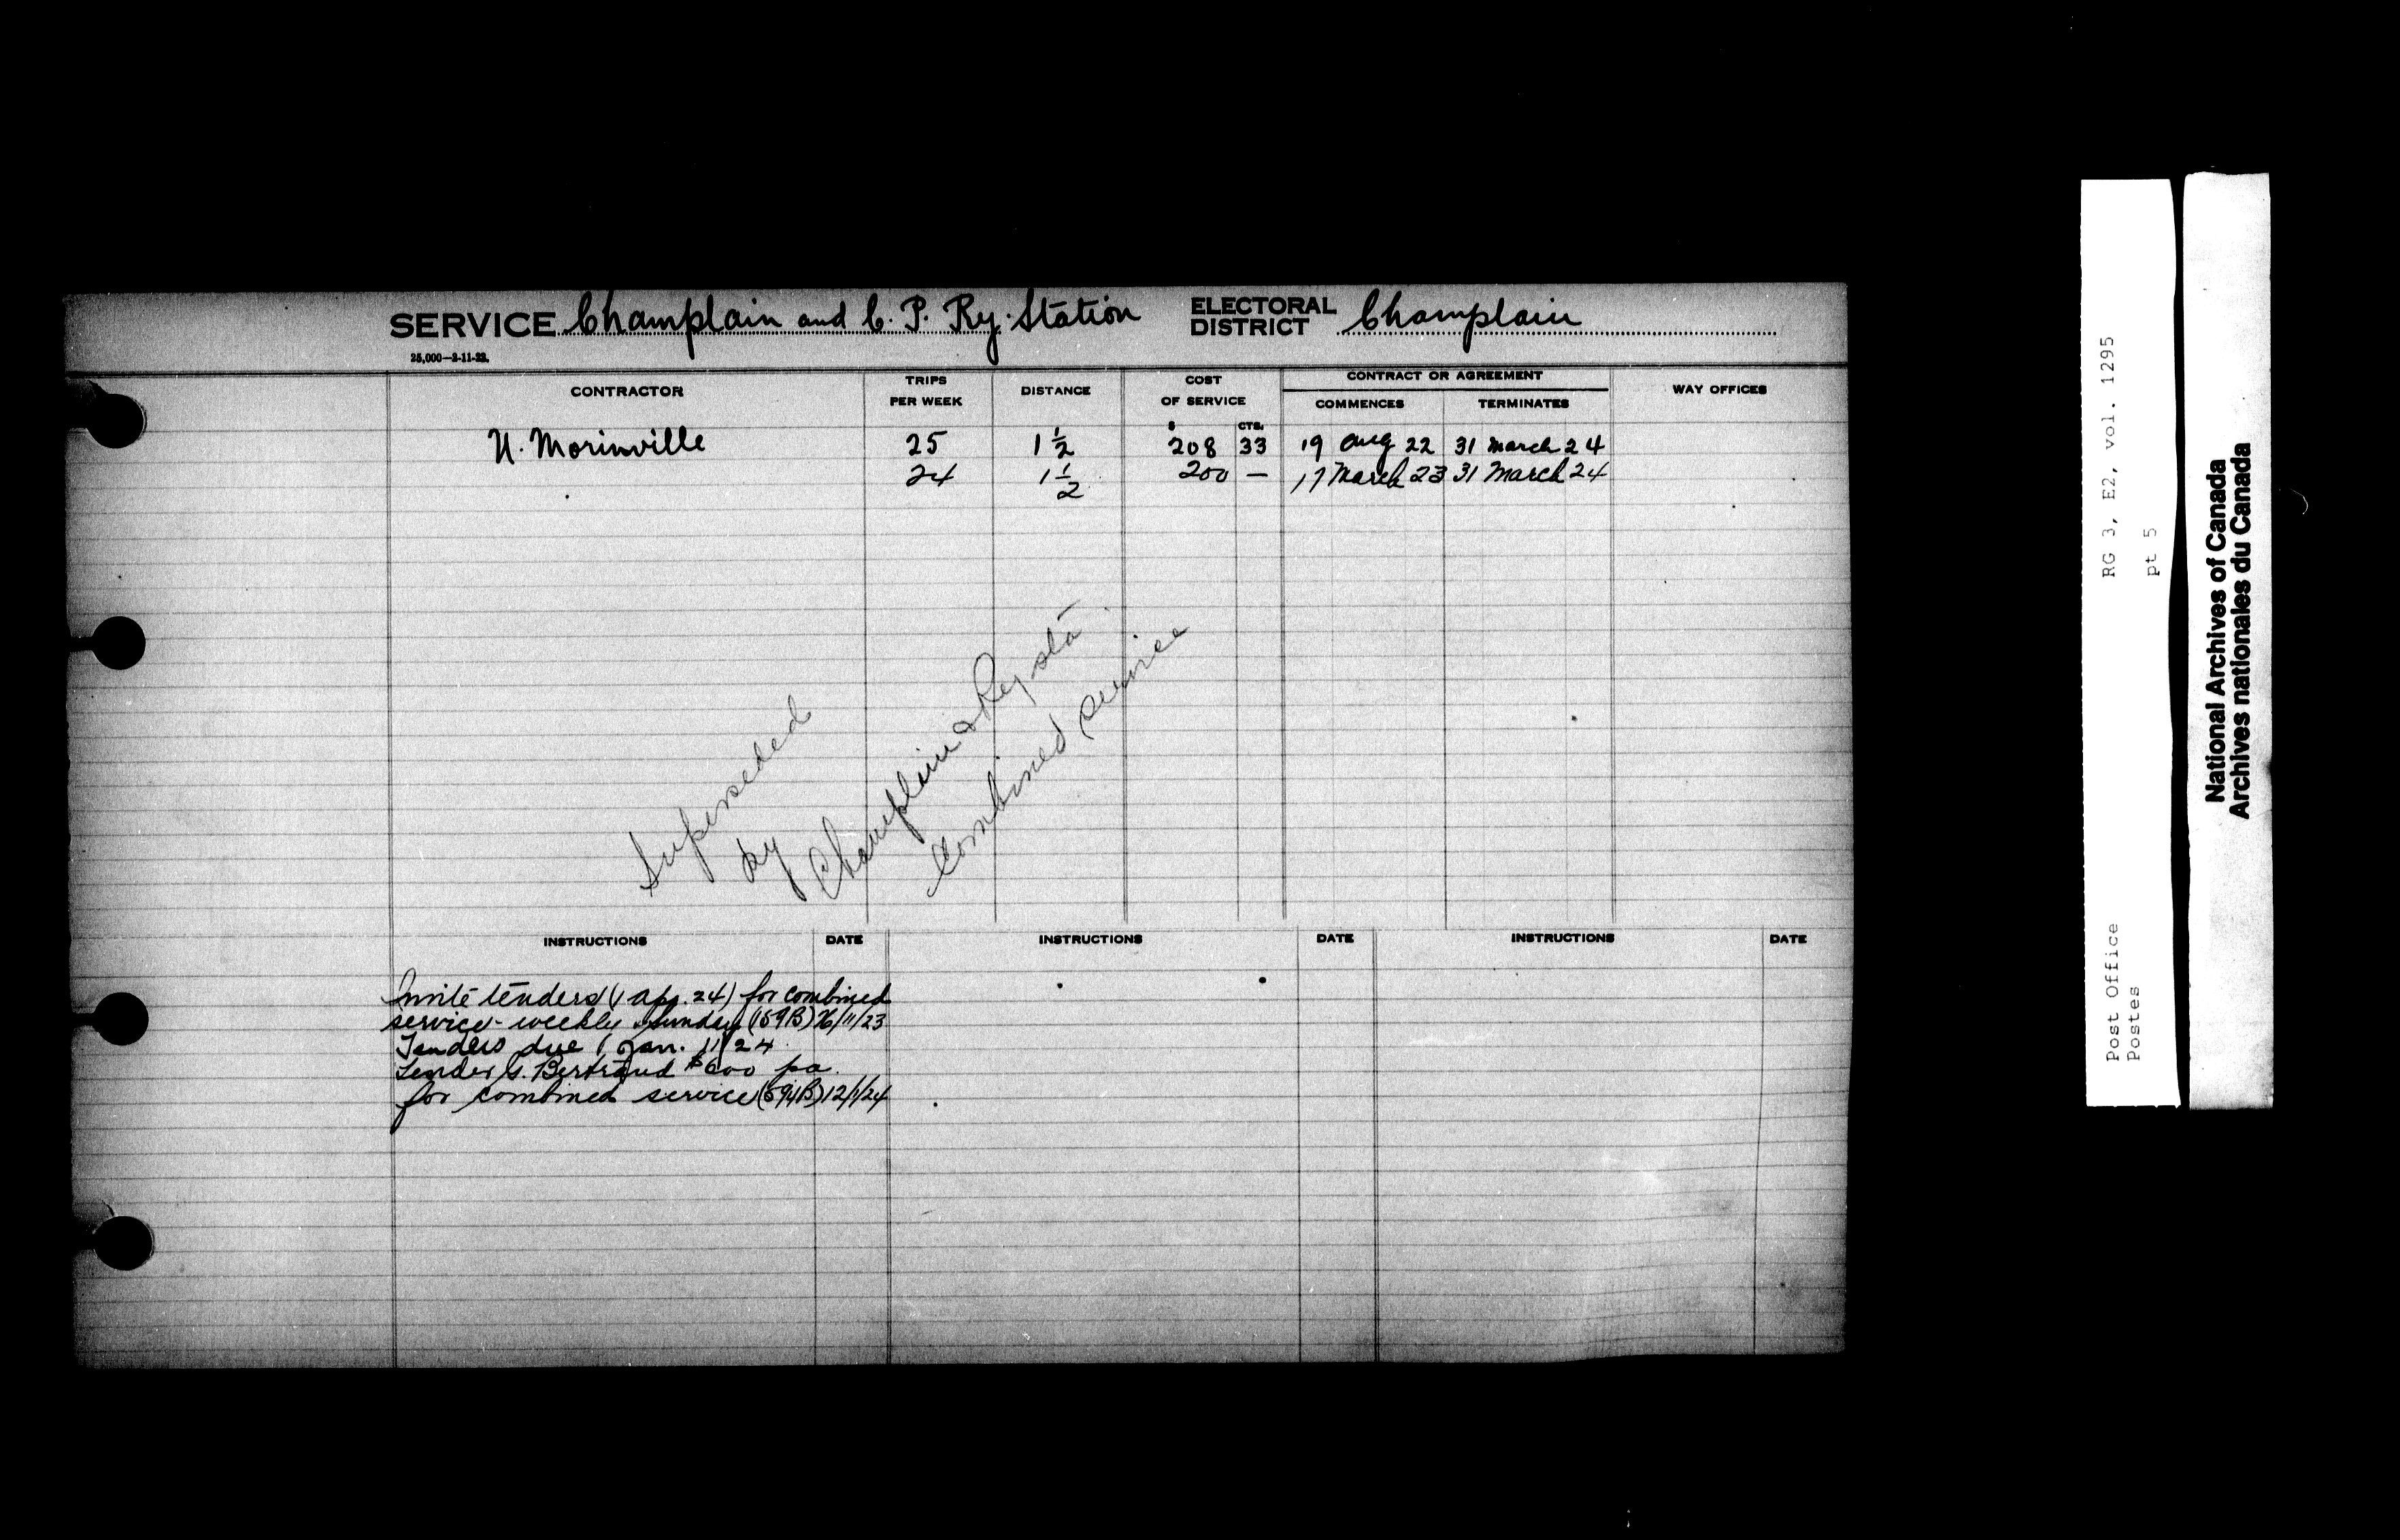 SERVICE Champlain and C. P. Ry. Station ELECTORAL DISTRICT Champlain
25,000—2-11-22.
CONTRACTOR TRIPS PER WEEK DISTANCE COST OF SERVICE CONTRACT OR AGREEMENT WAY OFFICES
COMMENCES TERMINATES
$ CTS.
U. Morinville 25 1 1/2 208 33 19 Aug 22 31 March 24
24 1 1/2 200 — 17 March 23 31 March 24
Superseded
by
Champlain & Ry Sta
Combined Service
INSTRUCTIONS DATE INSTRUCTIONS DATE INSTRUCTIONS DATE
Invite tenders (1 Apr. 24) for combined
service - weekly Sunday (159B) 26/11/23
Tenders due 1 Jan. 11/24
Tender Bertrand $600 pa.
for combined service (591B) 12/1/24
RG 3, E2, vol. 1295
pt 5
Post Office
Postes
National Archives of Canada
Archives nationales du Canada